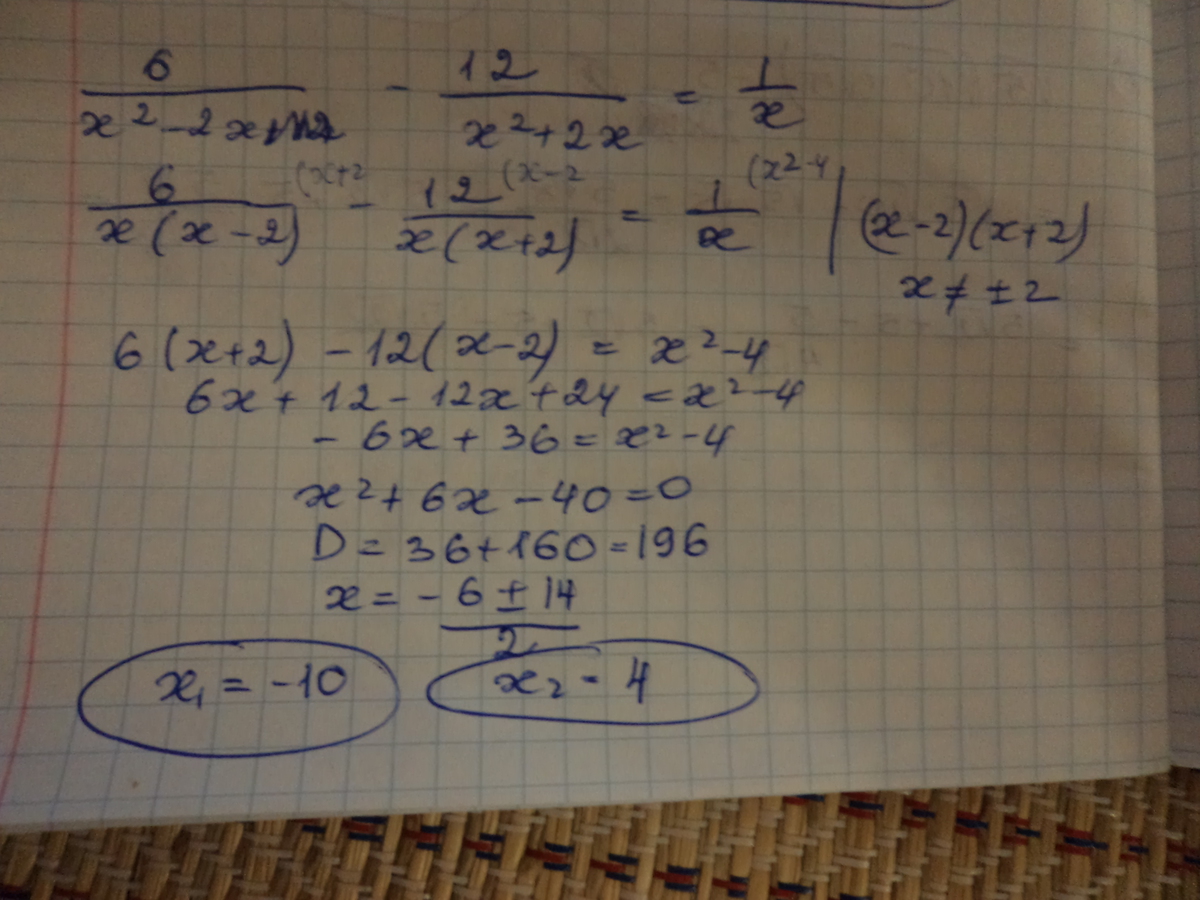 6/(x² - 2x) - 12/(x² + 2x) = 1/x
6/(x(x-2)) (x+2 - 12/(x(x+2)) (x-2 = 1/x (x²-4 | (x-2)(x+2)
x ≠ ±2
6(x+2) - 12(x-2) = x²-4
6x + 12 - 12x + 24 = x²-4
- 6x + 36 = x²-4
x² + 6x - 40 = 0
D = 36 + 160 = 196
x = (-6 ± 14)/2
x₁ = -10 x₂ - 4